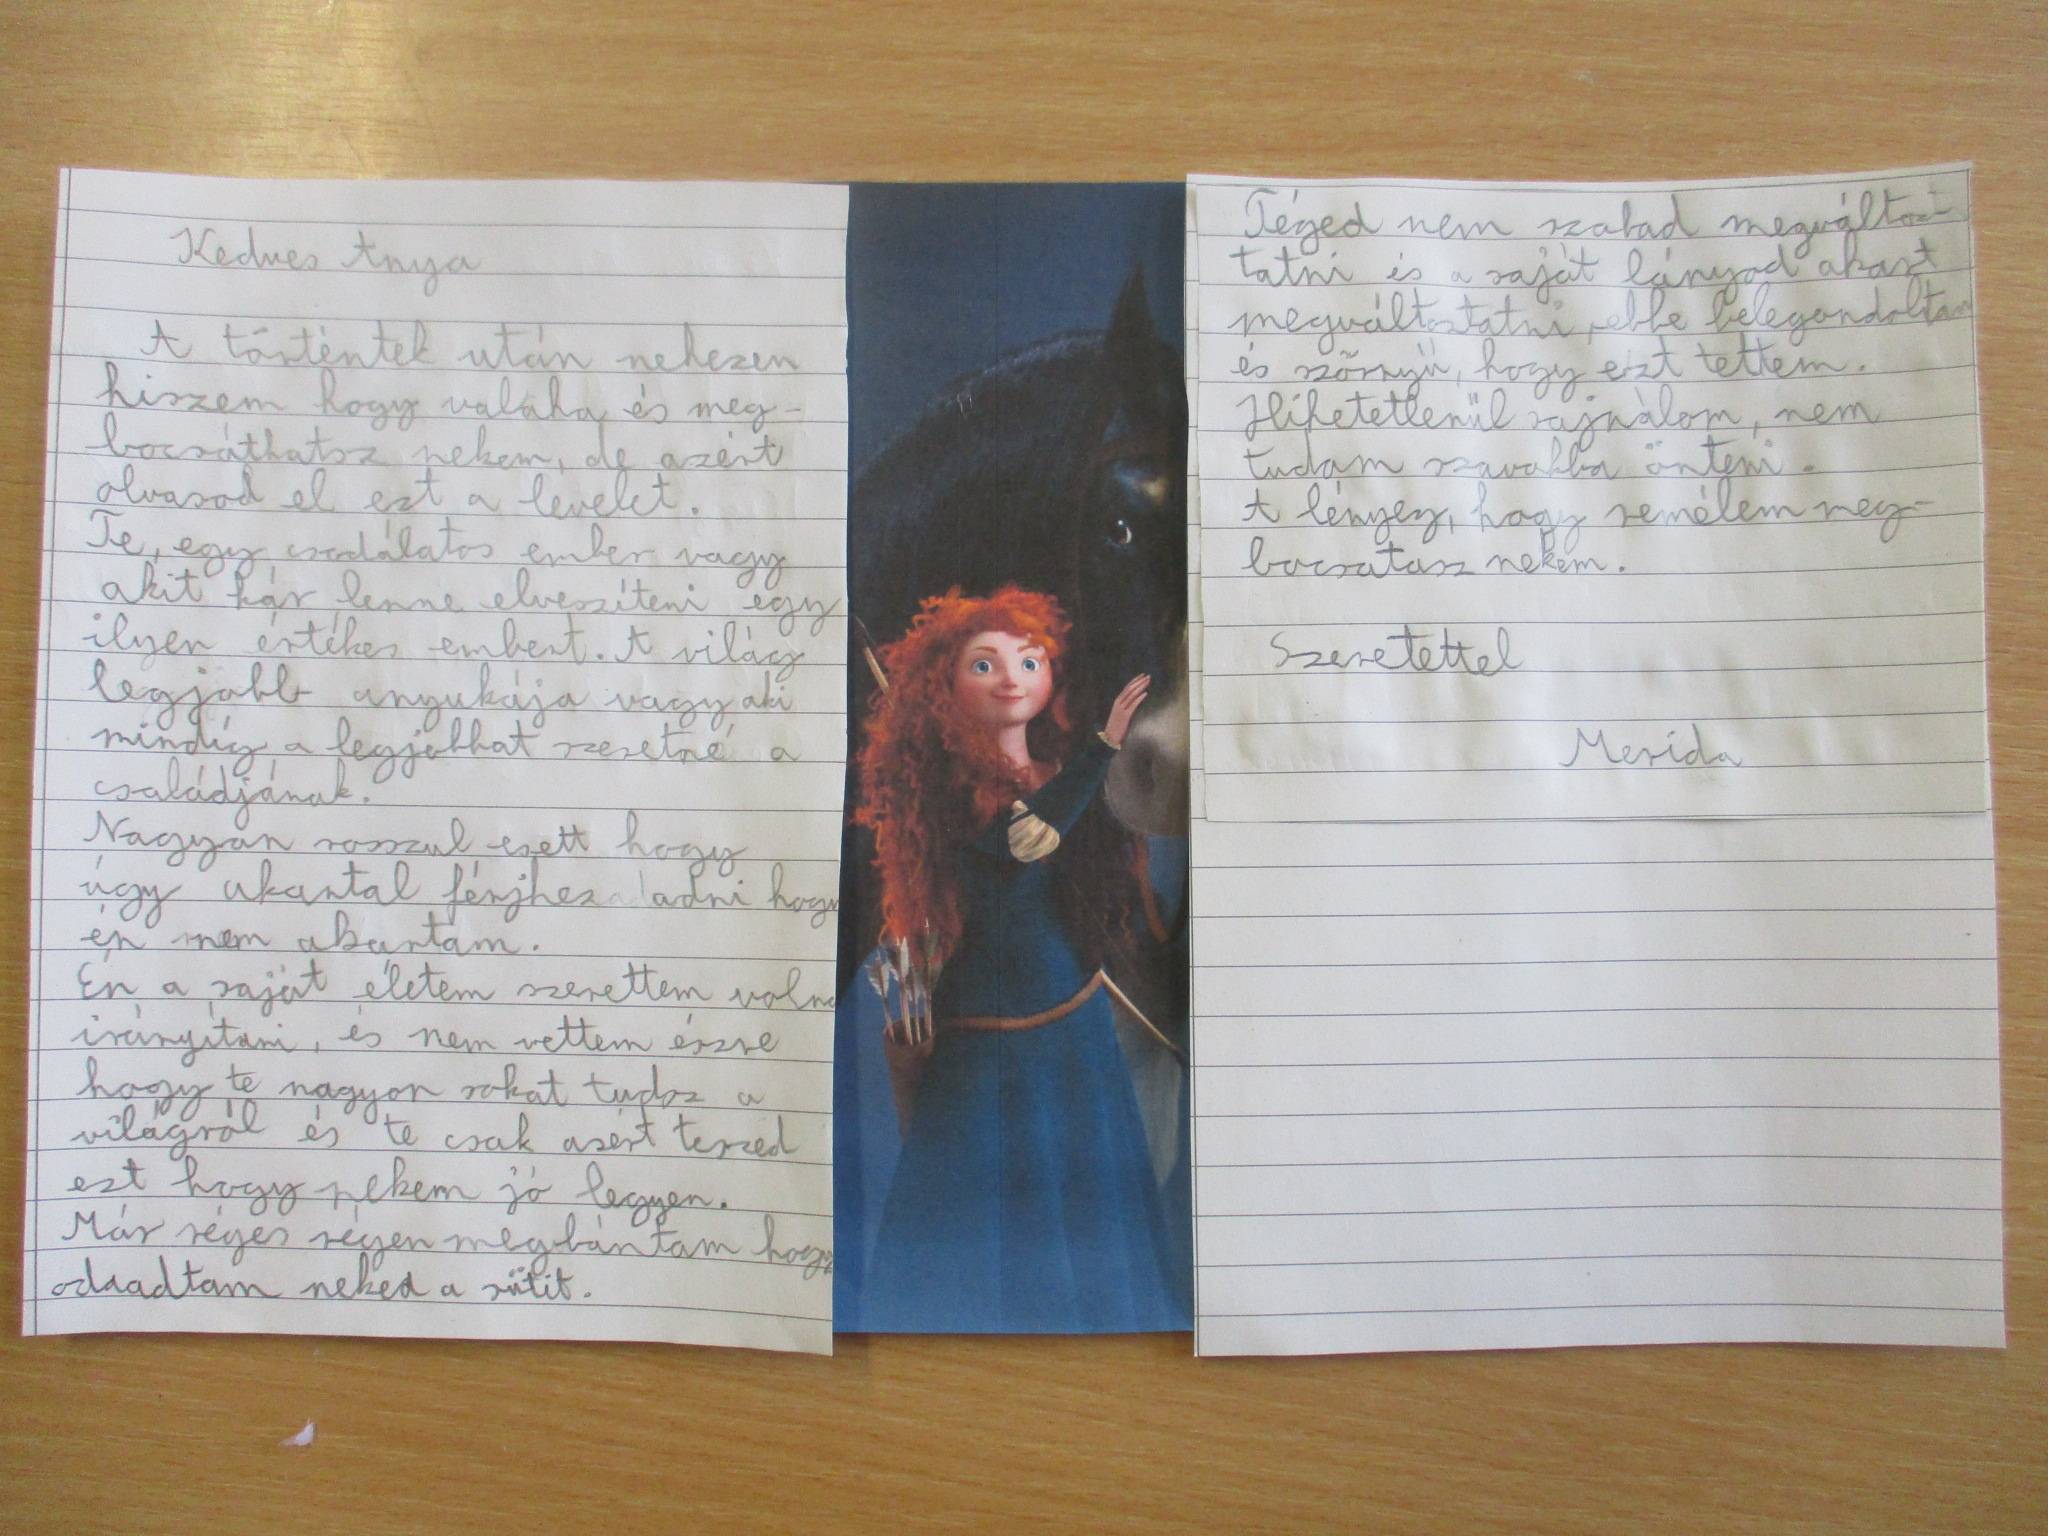 Kedves Anya
A történtek után nehezen
hiszem hogy valaha és meg-
bocsáthatsz nekem, de azért
olvasod el ezt a levelet.
Te, egy csodálatos ember vagy
akit kár lenne elveszíteni egy
ilyen értékes embert. A világ
legjobb anyukája vagy aki
mindíg a legjobbat szeretné a
családjának.
Nagyon rosszul esett hogy
úgy akartál férjhez adni hogy
én nem akartam.
Én a saját életem szerettem volna
irányítani, és nem vettem észre
hogy te nagyon sokat tudsz a
világról és te csak azért teszed
ezt hogy nekem jó legyen.
Már réges régen megbántam hogy
odaadtam neked a sütit.
Téged nem szabad megváltoz-
tatni és a saját lányod akart
megváltoztatni, ebbe belegondoltam
és szörnyű, hogy ezt tettem.
Hihetetlenül sajnálom, nem
tudom szavakba önteni.
A lényeg, hogy remélem meg-
bocsátasz nekem.
Szeretettel
Merida